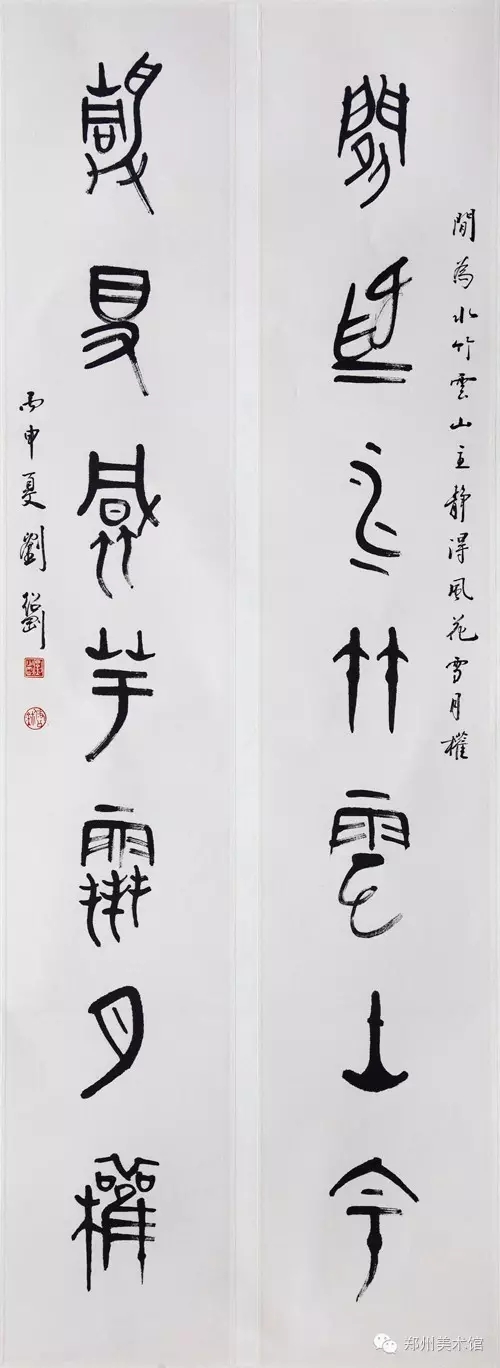 閒為水竹雲山主
間為水竹雲山主静得風花雪月權
静得風花雪月權
丙申夏劉紹剛
郑州美术馆